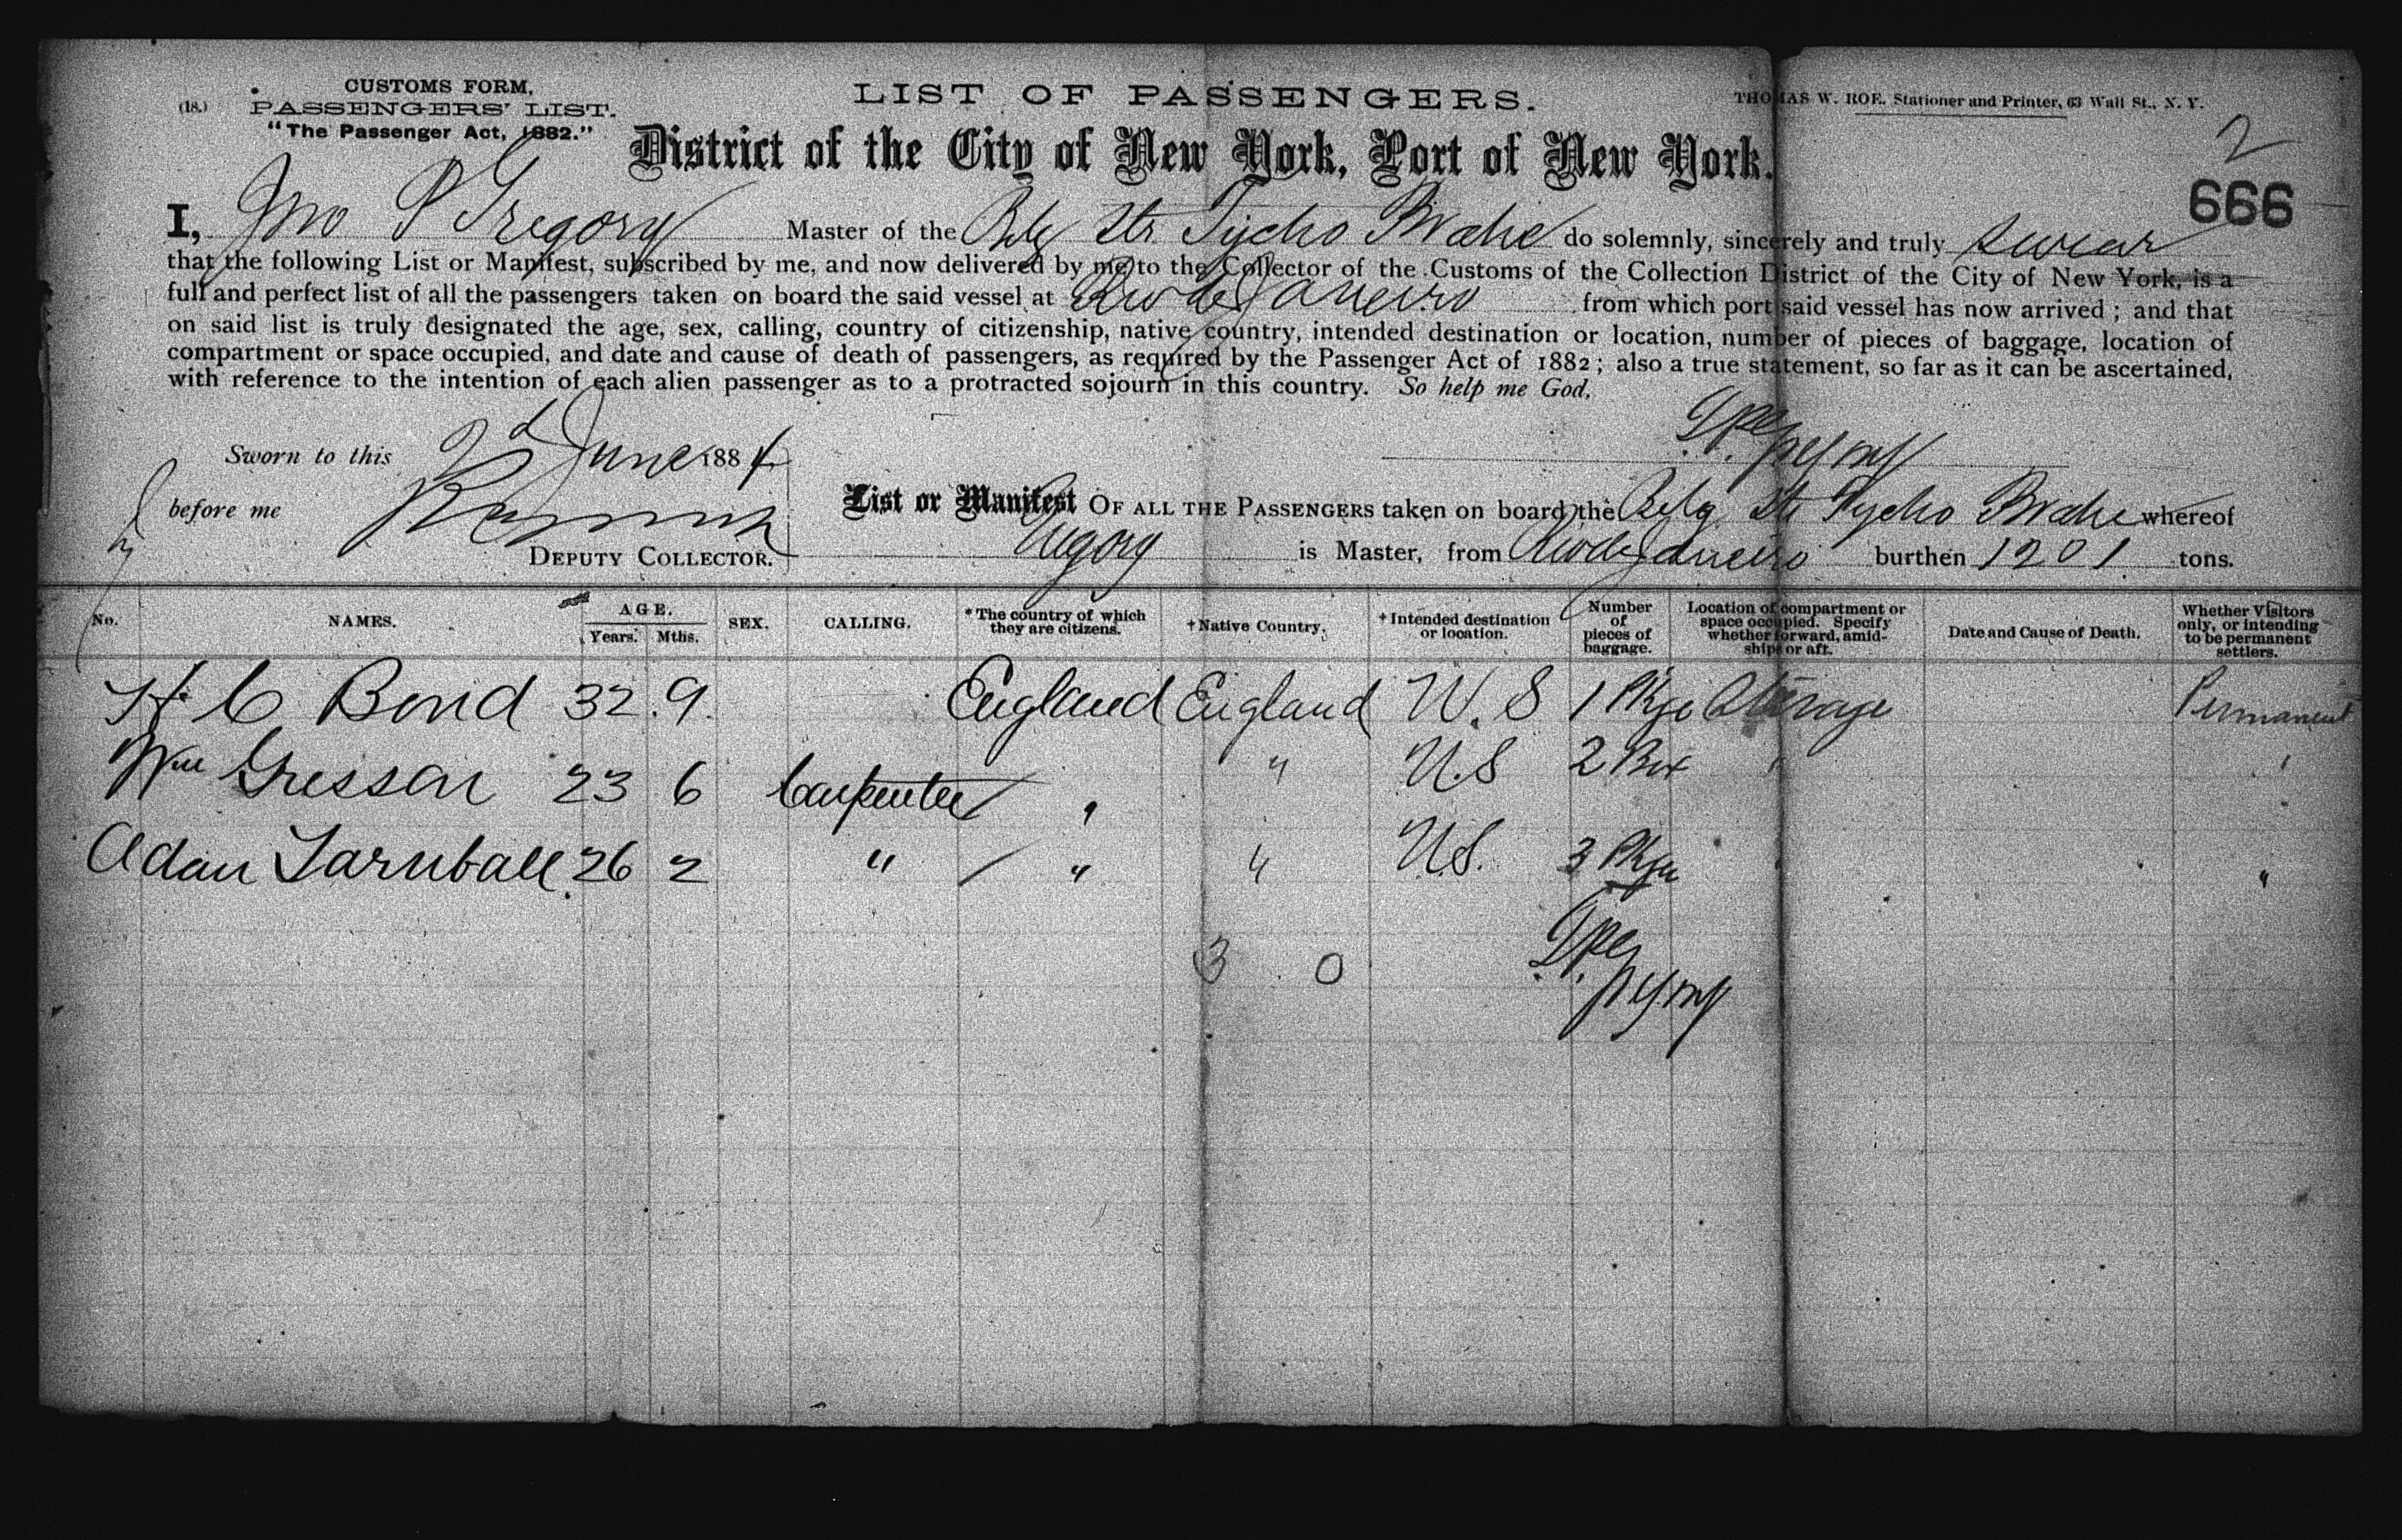 CUSTOMS FORM,
(18.) PASSENGERS' LIST.
"The Passenger Act, 1882."
LIST OF PASSENGERS.
THOMAS W. ROE. Stationer and Printer, 63 Wall St., N. Y.
2
District of the City of New York, Port of New York.
666
I, Jno P Gregory Master of the Belg Str Tycho Brahe do solemnly, sincerely and truly swear
that the following List or Manifest, subscribed by me, and now delivered by me to the Collector of the Customs of the Collection District of the City of New York, is a
full and perfect list of all the passengers taken on board the said vessel at Rio de Janeiro from which port said vessel has now arrived; and that
on said list is truly designated the age, sex, calling, country of citizenship, native country, intended destination or location, number of pieces of baggage, location of
compartment or space occupied, and date and cause of death of passengers, as required by the Passenger Act of 1882; also a true statement, so far as it can be ascertained,
with reference to the intention of each alien passenger as to a protracted sojourn in this country. So help me God.
Sworn to this 2d June 1884
before me
DEPUTY COLLECTOR.
List or Manifest OF ALL THE PASSENGERS taken on board the Belg Str Tycho Brahe whereof
Gregory is Master, from Rio de Janeiro burthen 1201 tons.
No. NAMES. AGE. Years. Mths. SEX. CALLING. *The country of which they are citizens. †Native Country. †Intended destination or location. Number of pieces of baggage. Location of compartment or space occupied. Specify whether forward, amidships or aft. Date and Cause of Death. Whether Visitors only, or intending to be permanent settlers.
H C Bond 32 9 England England U.S 1 Pkge Sterage Permanent
Wm Gresson 23 6 Carpenter " " U.S 2 Box " "
Adam Tarnball 26 2 " " " U.S. 3 Pkgs "
3 0